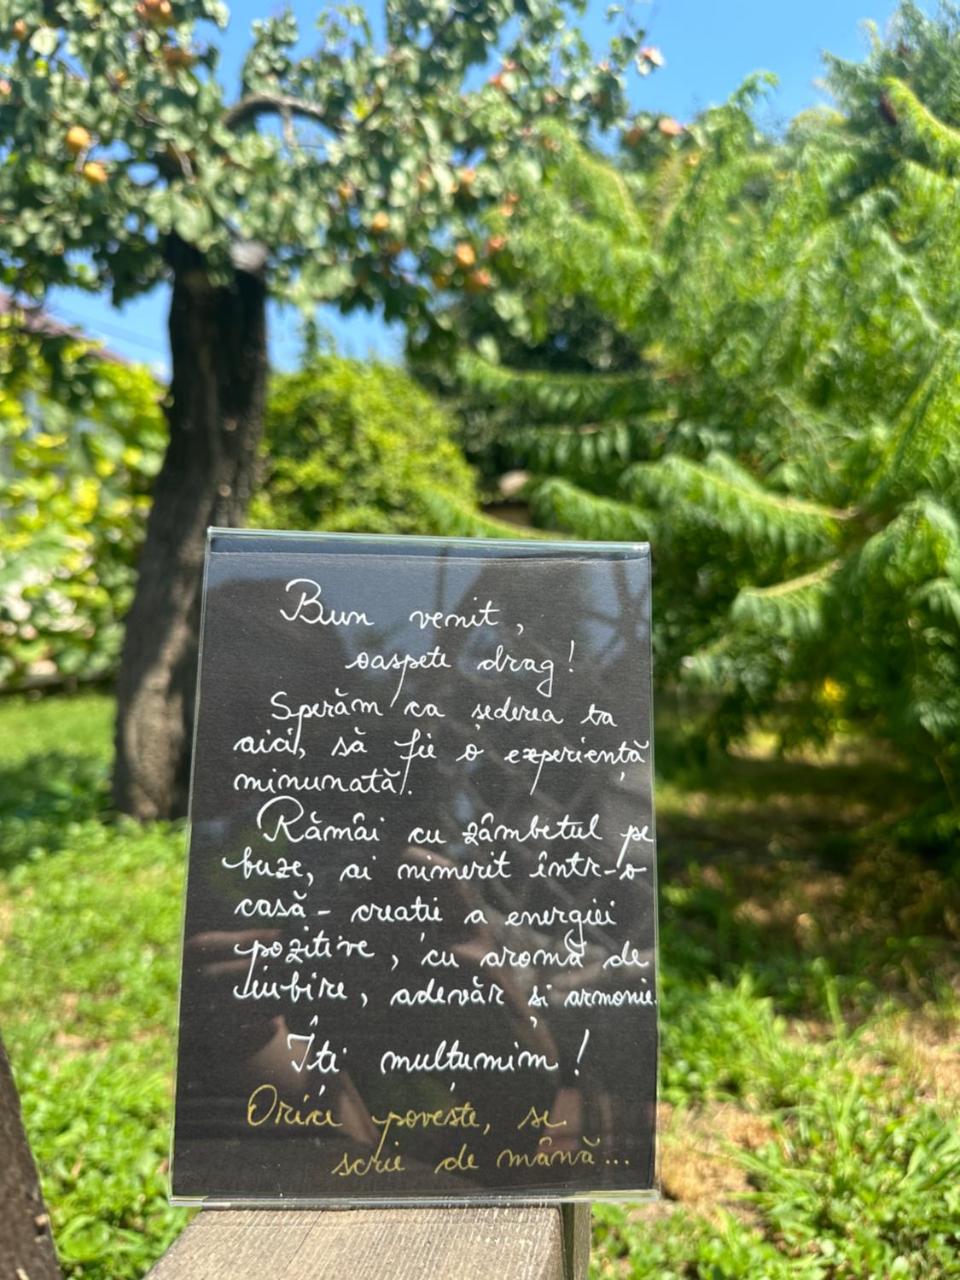 Bun venit,
oaspete drag!
Sperăm ca șederea ta
aici, să fie o experiență
minunată!
Rămâi cu zâmbetul pe
buze, ai nimerit într-o
casă - creație a energiei
pozitive, cu aromă de
iubire, adevăr și armonie.
Îți mulțumim!
Orice poveste, se
scrie de mână...